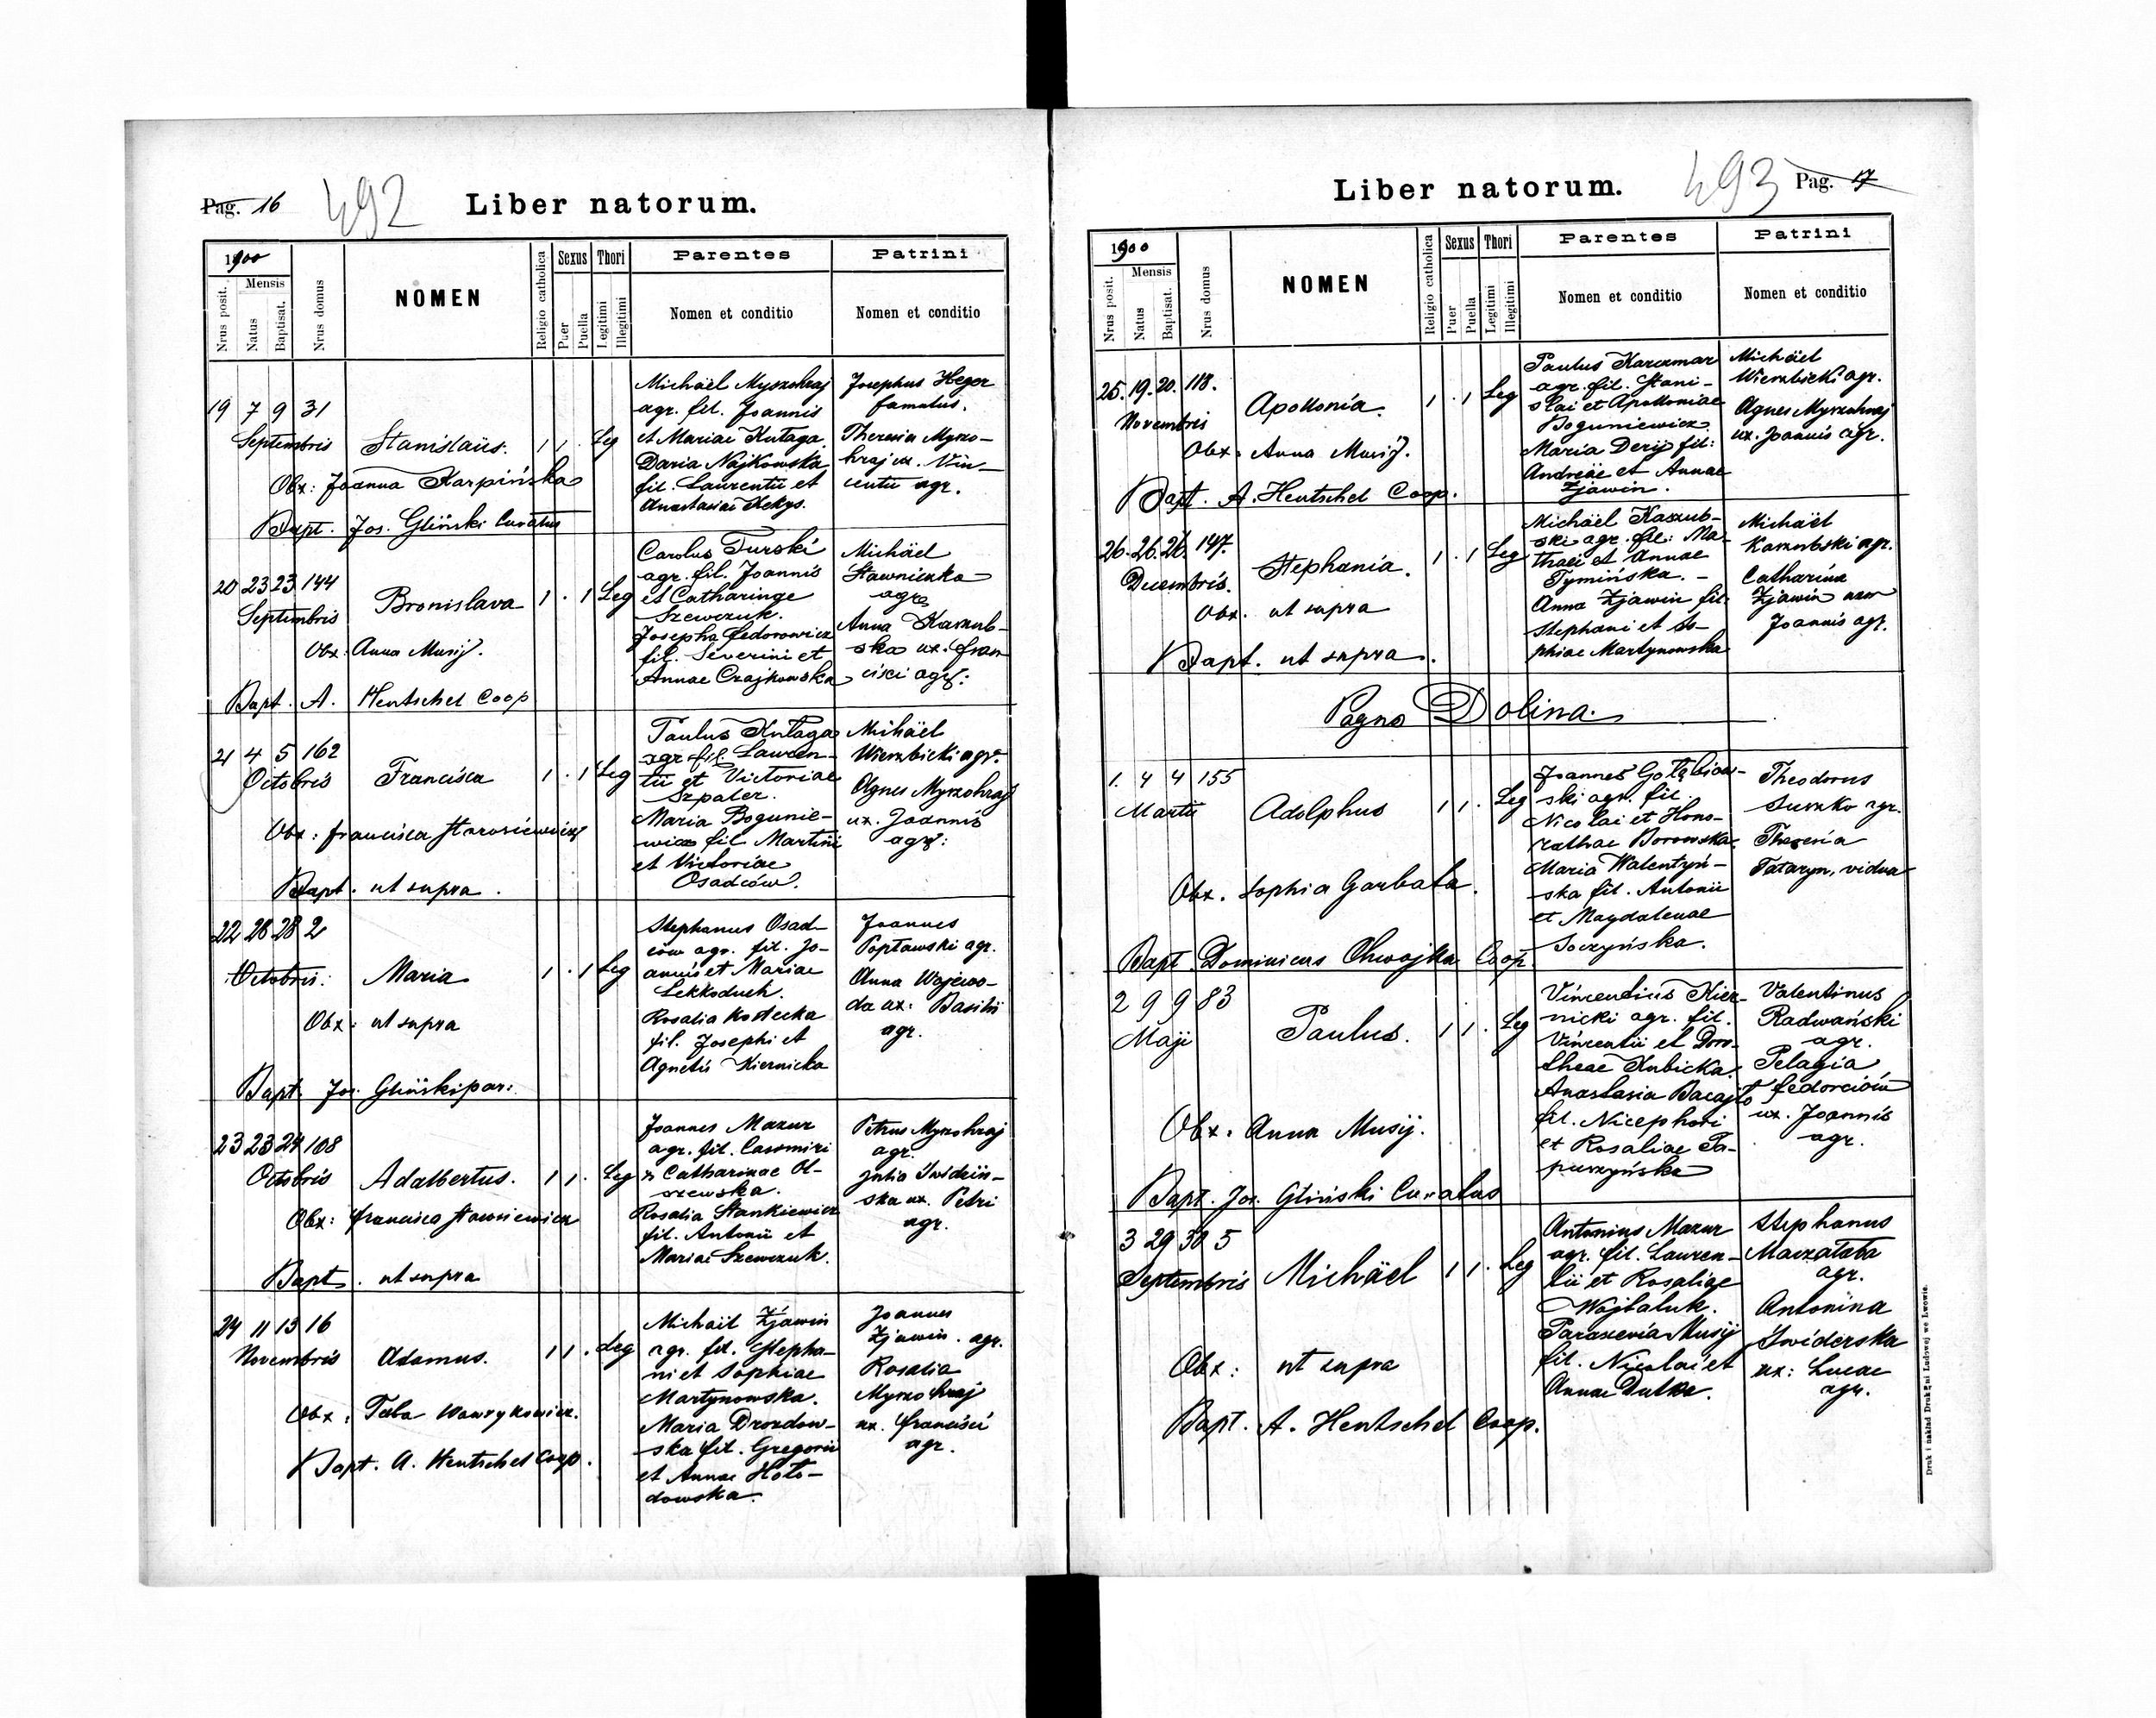 Pag. 16
492
Liber natorum.
1900
Mensis
Nrus posit.
Natus
Baptisat.
Nrus domus
NOMEN
Religio catholica
Sexus
Puer
Puella
Thori
Legitimi
Illegitimi
Parentes
Nomen et conditio
Patrini
Nomen et conditio
19 7 9 31
Septembris
Stanislaüs.
1 1 . Leg
Obx: Joanna Karpińska
Bapt. Jos. Gliński Curatus
Michäel Myszohraj
agr. fil. Joannis
et Mariae Kutaga.
Daria Najkowska
fil. Laurentii et
Anastasiae Kekys.
Josephus Heger
famulus.
Theresia Myszo-
hraj ux. Vin-
centii agr.
20 23 23 144
Septembris
Bronislava
1 . 1 Leg
Obx: Anna Musij.
Bapt. A. Hentschel Coop
Carolus Turski
agr. fil. Joannis
et Catharinae
Szewczuk.
Josepha Fedorowicz
fil. Severini et
Annae Czajkowska
Michäel
Stawniczka
agr.
Anna Kaszub-
ska ux. Fran
cisci agr:
21 4 5 162
Octobris
Francisca
1 . 1 Leg
Obx: Francisca Starosiewicz
Bapt. ut supra.
Paulus Kutaga
agr. fil. Lauren-
tii et Victoriae
Szpaler.
Maria Bogunie-
wicz fil Martini
et Victoriae
Osadców.
Mihäel
Wierzbicki agr.
Agnes Myszohraj
ux. Joannis
agr:
22 28 28 2
Octobris.
Maria
1 . 1 Leg
Obx: ut supra
Bapt. Jos. Gliński par:
Stephanus Osad-
ców agr. fil. Jo-
annis et Mariae
Lekkoduch.
Rosalia Kostecka
fil. Josephi et
Agnetis Kiernicka
Joannes
Popławski agr.
Anna Wojewo-
da ux: Basilii
agr.
23 23 24 108
Octobris
Adalbertus.
1 1 . Leg
Obx: Francisca
Bapt. ut supra
Joannes Mazur
agr. fil. Casimiri
et Catharinae Ol-
szewska.
Rosalia Stankiewicz
fil. Antonii et
Mariae Szewczuk.
Petrus Myszohraj
agr.
Julia Swidziń-
ska ux. Petri
agr.
24 11 13 16
Novembris
Adamus.
1 1 . Leg
Obx: Tekla Wawrykowicz.
Bapt. A. Hentschel Coop.
Michäil Zjawin
agr. fil. Stepha-
ni et Sophiae
Martynowska.
Maria Drozdow-
ska fil. Gregorii
et Annae Hoło-
dowska.
Joannes
Zjawin. agr.
Rosalia
Myszohraj
ux. Francisci
agr.
Liber natorum.
493
Pag. 17
1900
Mensis
Nrus posit.
Natus
Baptisat.
Nrus domus
NOMEN
Religio catholica
Sexus
Puer
Puella
Thori
Legitimi
Illegitimi
Parentes
Nomen et conditio
Patrini
Nomen et conditio
25. 19. 20. 118.
Novembris
Apollonia.
1 . 1 Leg
Obx. Anna Musij.
Bapt. A. Hentschel Coop.
Paulus Karczmar
agr. fil. Stani-
slai et Apolloniae
Boguniewicz.
Maria Derij fil:
Andreäe et Annae
Zjawin.
Michäel
Wierzbicki agr.
Agnes Myszohraj
ux. Joannis agr.
26. 26. 26. 147.
Decembris.
Stephania.
1 . 1 Leg
Obx. ut supra
Bapt. ut supra.
Michäel Kaszub-
ski agr. fil: Ma-
thaei et Annae
Tymińska. -
Anna Zjawin fil:
Stephani et So-
phiae Martynowska
Michäel
Kaszubski agr.
Catharina
Zjawin uxor
Joannis agr.
Pagno Dolina.
1. 4 4 155
Martii
Adolphus
1 1 . Leg
Obx. Sophia Garbata.
Bapt. Dominicus Chwojka Coop.
Joannes Gołębiow-
ski agr. fil.
Nicolai et Hono-
rathae Borowska.
Maria Walentyń-
ska fil. Antonii
et Magdalenae
Soczyńska.
Theodorus
Suszko agr.
Theresia
Tataryn, vidua
2 9 9 83
Maji
Paulus.
1 1 . Leg
Obx. Anna Musij.
Bapt. Jos. Gliński Curatus
Vincentius Kier-
nicki agr. fil.
Vincentii et Doro-
theae Kubicka.
Anastasia
fil. Nicephori
et Rosaliae Pa-
puszyńska
Valentinus
Radwański
agr.
Pelagia
Fedorciów
ux. Joannis
agr.
3 29 30 5
Septembris
Michäel
1 1 . Leg
Obx: ut supra
Bapt. A. Hentschel Coop.
Antonius Mazur
agr. fil. Lauren-
tii et Rosaliae
Wojtaluk.
Parascevia Musij
fil. Nicolai et
Annae Dutka.
Stephanus
Marzałata
agr.
Antonina
Swiderska
ux: Lucae
agr.
Druk i nakład Drukarni Ludowej we Lwowie.